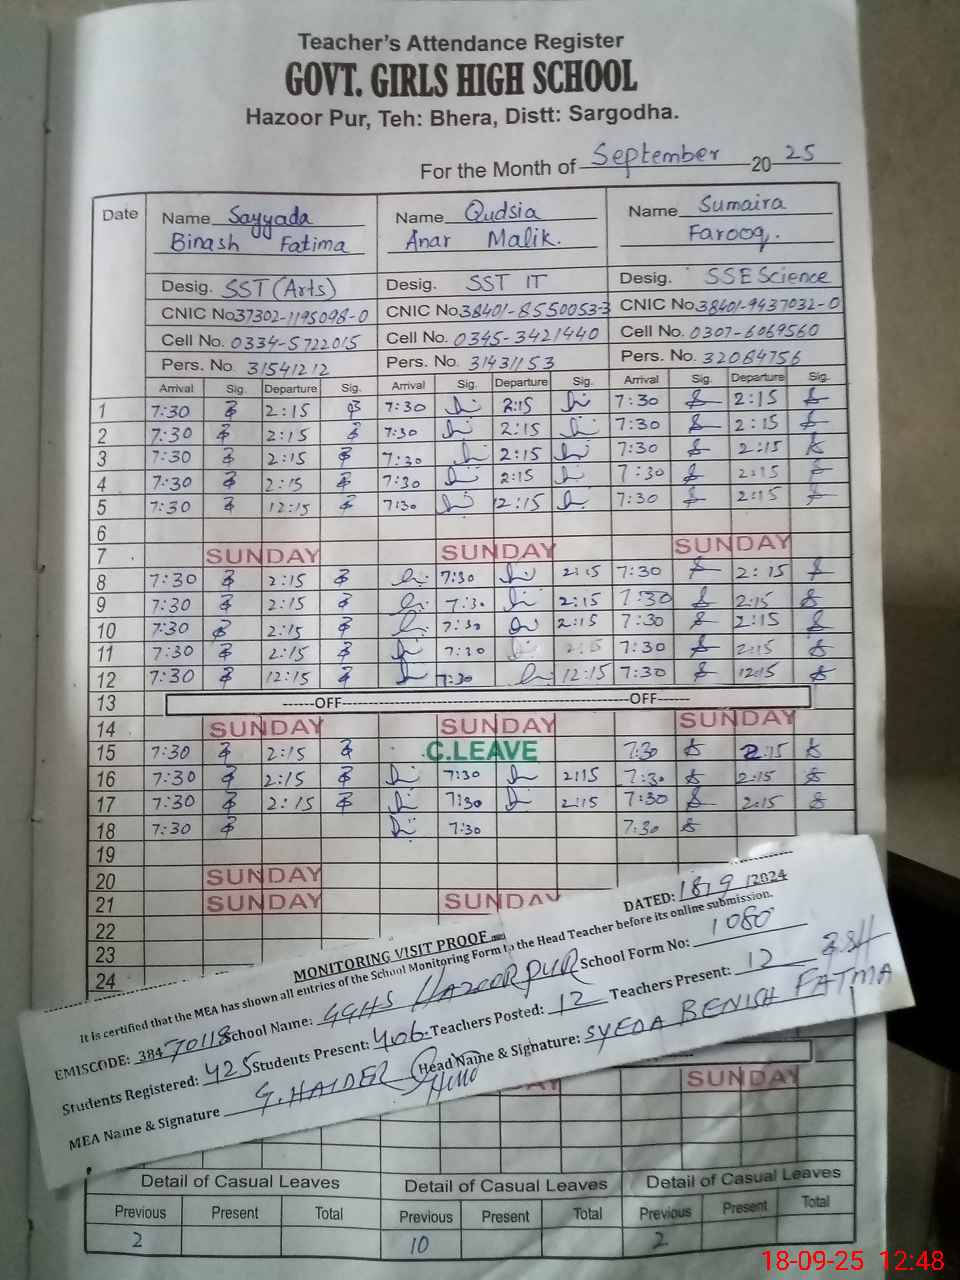 Teacher's Attendance Register
GOVT. GIRLS HIGH SCHOOL
Hazoor Pur, Teh: Bhera, Distt: Sargodha.
For the Month of September 20 25
Date Name Sayyada Name Qudsia Name Sumaira
Binash Fatima Anar Malik. Farooq.
Desig. SST (Arts) Desig. SST IT Desig. SSE Science
CNIC No 37302-1195098-0 CNIC No 38401-8550053-3 CNIC No 38401-9437032-0
Cell No. 0334-5722015 Cell No. 0345-3421440 Cell No. 0307-6069560
Pers. No. 31541212 Pers. No. 31431153 Pers. No. 32084756
Arrival Sig. Departure Sig. Arrival Sig. Departure Sig. Arrival Sig. Departure Sig.
1 7:30 2:15 7:30 2:15 7:30 2:15
2 7:30 2:15 7:30 2:15 7:30 2:15
3 7:30 2:15 7:30 2:15 7:30 2:15
4 7:30 2:15 7:30 2:15 7:30 2:15
5 7:30 12:15 7:30 12:15 7:30 2:15
6
7 SUNDAY SUNDAY SUNDAY
8 7:30 2:15 7:30 2:15 7:30 2:15
9 7:30 2:15 7:30 2:15 7:30 2:15
10 7:30 2:15 7:30 2:15 7:30 2:15
11 7:30 2:15 7:30 2:15 7:30 2:15
12 7:30 12:15 7:30 12:15 7:30 12:15
13 ------OFF------OFF------
14 SUNDAY SUNDAY SUNDAY
15 7:30 2:15 C.LEAVE 7:30 2:15
16 7:30 2:15 7:30 2:15 7:30 2:15
17 7:30 2:15 7:30 2:15 7:30 2:15
18 7:30 7:30 7:30
19
20 SUNDAY
21 SUNDAY SUNDAY
22
23
24
MONITORING VISIT PROOF DATED: 18/9/2024
It is certified that the MEA has shown all entries of the School Monitoring Form to the Head Teacher before its online submission.
EMISCODE: 38470118 School Name: GGHS HAZOOR PUR School Form No: 1080
Students Registered: 425 Students Present: 406 Teachers Posted: 12 Teachers Present: 12
MEA Name & Signature G. HAIDER Head Name & Signature: SYEDA BENISH FATMA
SUNDAY
Detail of Casual Leaves Detail of Casual Leaves Detail of Casual Leaves
Previous Present Total Previous Present Total Previous Present Total
2 10 2
18-09-25 12:48